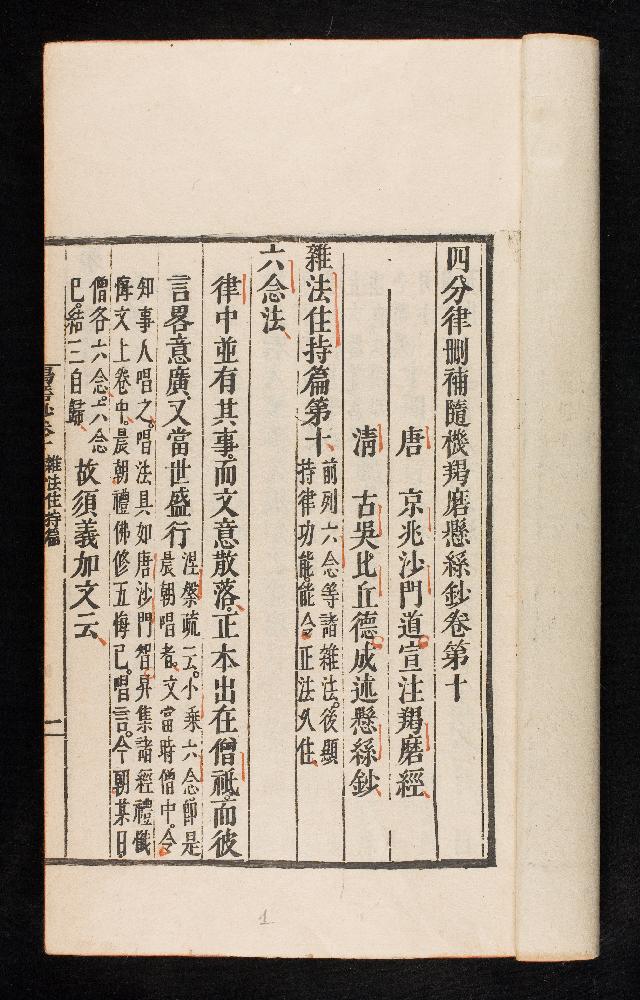 四分律刪補隨機羯磨懸絲鈔卷第十
唐 京兆沙門道宣注羯磨經
清 古吳比丘德成述懸絲鈔
雜法住持篇第十
前列六念等諸雜法。後顯
持律功能。能令正法久住
六念法
律中並有其事。而文意散落。正本出在僧祇。而彼
言畧意廣。又當世盛行
涅槃疏云。小乘六念卽是
晨朝唱者。文當時僧中。令
知事人唱之。唱法具如唐沙門智昇集諸經禮懺
悔文上卷中。晨朝禮佛修五悔已。唱言。今朝某日。
僧各六念。六念
已。結三自歸。
故須義加文云
雜法住持篇
一
1